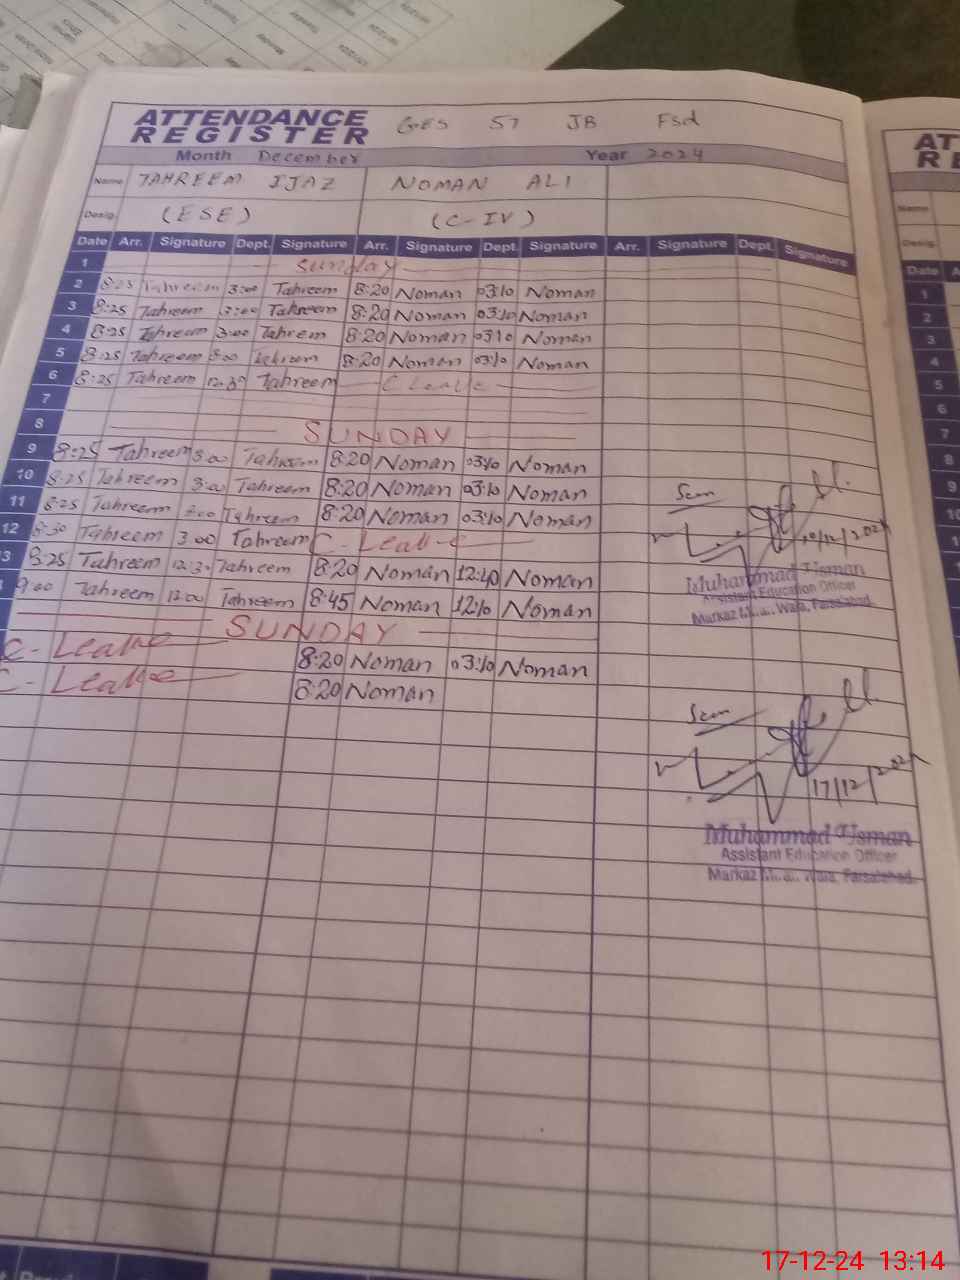 ATTENDANCE REGISTER GES 57 JB Fsd
Month December Year 2024
Name TAHREEM IJAZ NOMAN ALI
Desig. (ESE) (C-IV)
Date Arr. Signature Dept. Signature Arr. Signature Dept. Signature Arr. Signature Dept. Signature
1 Sunday
2 8:25 Tahreem 3:00 Tahreem 8:20 Noman 03:10 Noman
3 8:25 Tahreem 3:00 Tahreem 8:20 Noman 03:10 Noman
4 8:25 Tahreem 3:00 Tahrem 8:20 Noman 03:10 Noman
5 8:25 Tahreem 3:00 Tahreem 8:20 Noman 03:10 Noman
6 8:25 Tahreem 12:30 Tahreem C Leave
7
8 SUNDAY
9 8:25 Tahreem 3:00 Tahreem 8:20 Noman 03:10 Noman
10 8:25 Tahreem 3:00 Tahreem 8:20 Noman 03:10 Noman
11 8:25 Tahreem 3:00 Tahreem 8:20 Noman 03:10 Noman
12 8:30 Tahreem 3:00 Tahreem C-Leave
3 8:25 Tahreem 12:30 Tahreem 8:20 Noman 12:40 Noman
9:00 Tahreem 12:00 Tahreem 8:45 Noman 12:10 Noman
SUNDAY
C-Leave 8:20 Noman 03:10 Noman
C-Leave 8:20 Noman
Seen
10/12/2024
Muhammad Usman
Assistant Education Officer
Markaz Wala, Faisalabad.
Seen
17/12/2024
Muhammad Usman
Assistant Education Officer
Markaz Wala, Faisalabad.
AT
RE
Name
Desig.
Date A
1
2
3
4
5
6
7
8
9
10
17-12-24 13:14